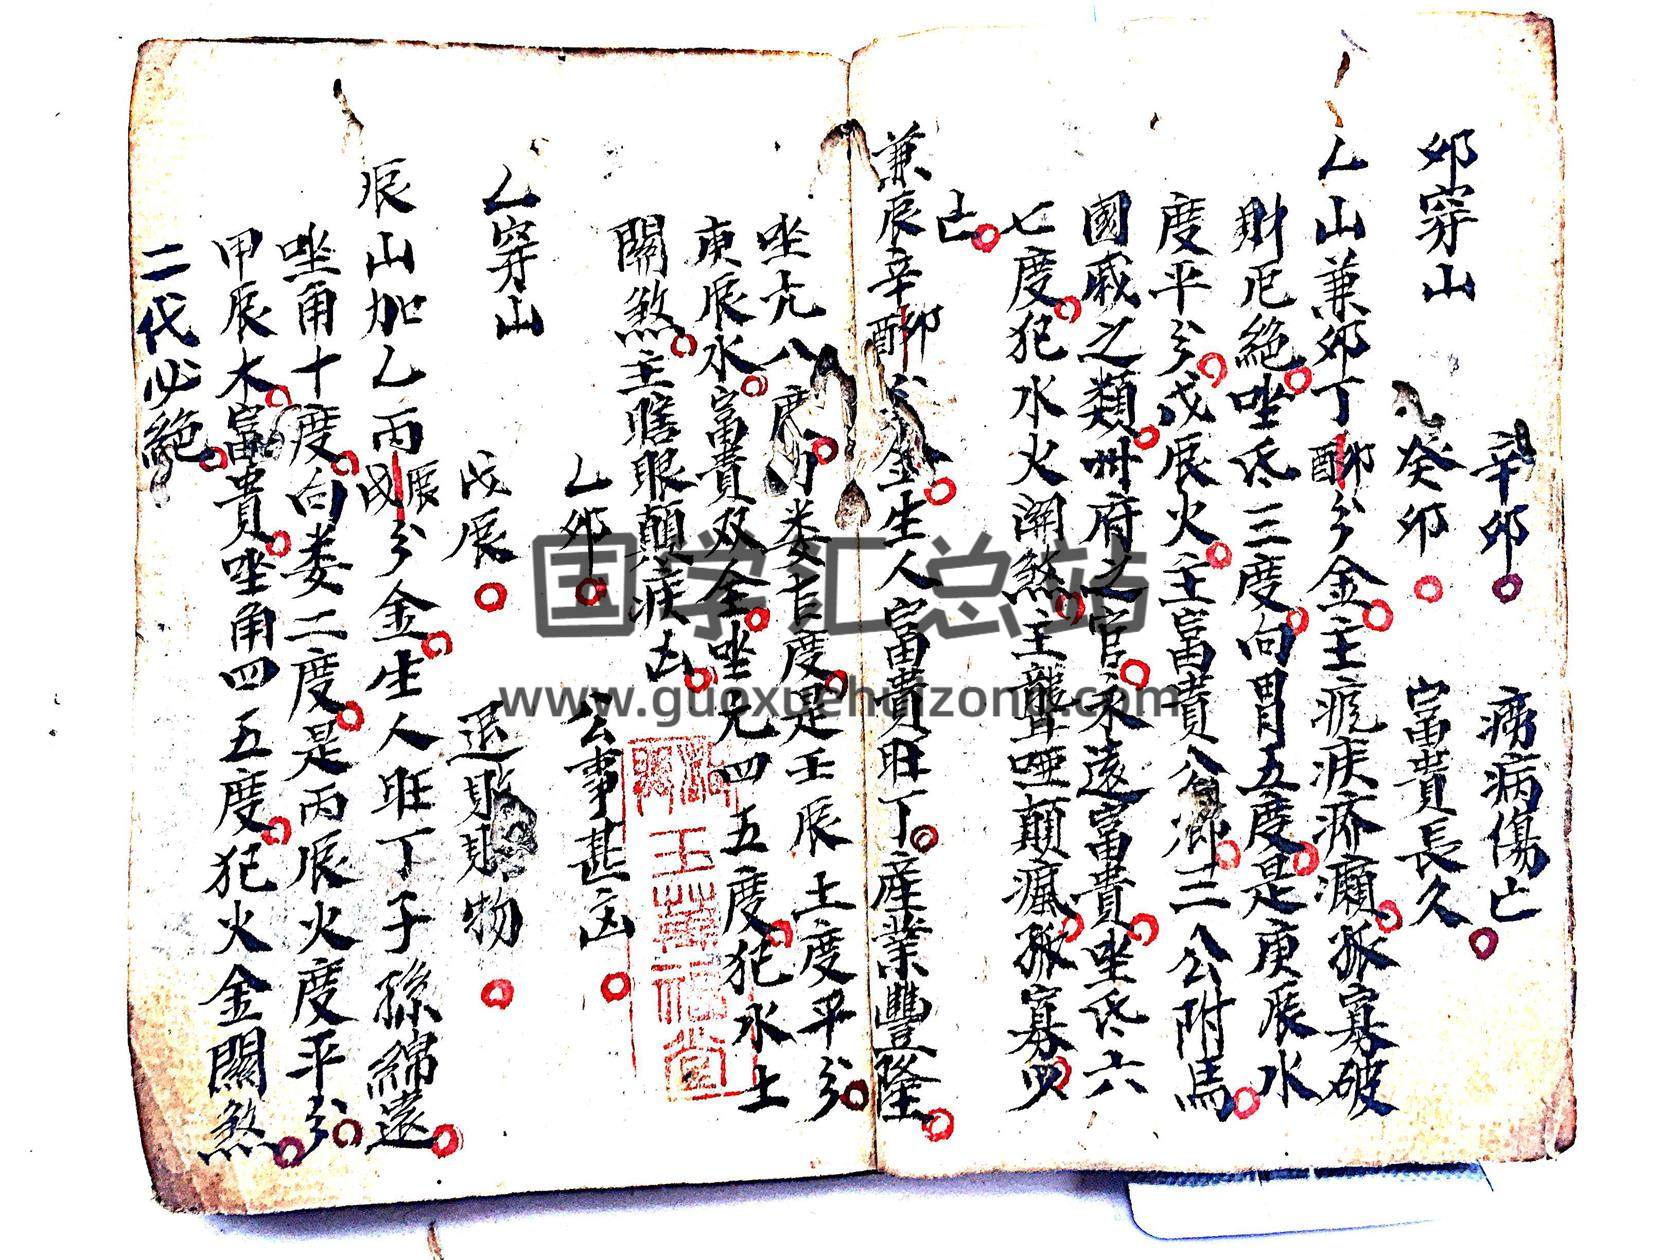 辛卯 癆病傷亡
卯穿山 癸卯 富貴長久
乙山兼卯丁酉卯分金主瘋疾疥癩孤寡破
財厄絕坐氐三度向胃五度是庚辰水
度平分戊辰火主富貴八卿二三公附馬
國戚之類州府之官永遠富貴坐氐六
七度犯水火關煞主聾啞顛瘋孤寡凶
亡
兼辰辛酉卯分金生人富貴旺丁產業豐隆
坐亢八度向婁七度是壬辰土度平分
庚辰水富貴双全坐亢四五度犯水土
關煞主瞎眼顛疾凶
乙卯 公事甚凶
乙穿山 戊辰 退財物
辰山加乙丙戌辰分金生人旺丁子孫綿遠
坐角十度向婁二度是丙辰火度平分
甲辰木富貴坐角四五度犯火金關煞
二代必絕
玉
福堂
国学汇总站
www.guoxuehuizong.com